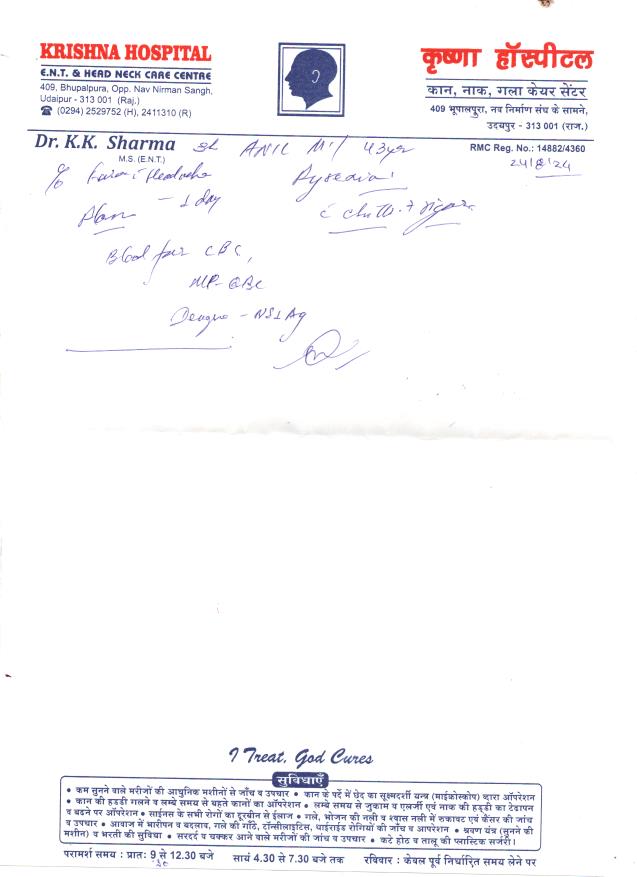 KRISHNA HOSPITAL
E.N.T. & HEAD NECK CARE CENTRE
409, Bhupalpura, Opp. Nav Nirman Sangh,
Udaipur - 313 001 (Raj.)
☎ (0294) 2529752 (H), 2411310 (R)
कृष्णा हॉस्पीटल
कान, नाक, गला केयर सेंटर
409 भूपालपुरा, नव निर्माण संघ के सामने,
उदयपुर - 313 001 (राज.)
Dr. K.K. Sharma
M.S. (E.N.T.)
RMC Reg. No.: 14882/4360
24/8/24
ANIL M/ 43yr
c/o Headache
- 1 day
Pyrexia
c chills + rigor
Plan
Blood for CBC,
MP-QBC
Dengue - NS1Ag
I Treat, God Cures
सुविधाएँ
• कम सुनने वाले मरीजों की आधुनिक मशीनों से जाँच व उपचार • कान के पर्दे में छेद का सूक्ष्मदर्शी यन्त्र (माईक्रोस्कोप) द्वारा ऑपरेशन
• कान की हड्डी गलने व लम्बे समय से बहते कानों का ऑपरेशन • लम्बे समय से जुकाम व एलर्जी एवं नाक की हड्डी का टेडापन
व बढने पर ऑपरेशन • साईनस के सभी रोगों का दूरबीन से ईलाज • गले, भोजन की नली व श्वास नली में रुकावट एवं कैंसर की जांच
व उपचार • आवाज में भारीपन व बदलाव, गले की गाँठे, टॉन्सीलाइटिस, थाईराईड रोगियों की जाँच व आपरेशन • श्रवण यंत्र (सुनने की
मशीन) व भरती की सुविधा • सरदर्द व चक्कर आने वाले मरीजों की जांच व उपचार • कटे होठ व तालू की प्लास्टिक सर्जरी।
परामर्श समय : प्रातः 9 से 12.30 बजे सायं 4.30 से 7.30 बजे तक रविवार : केवल पूर्व निर्धारित समय लेने पर